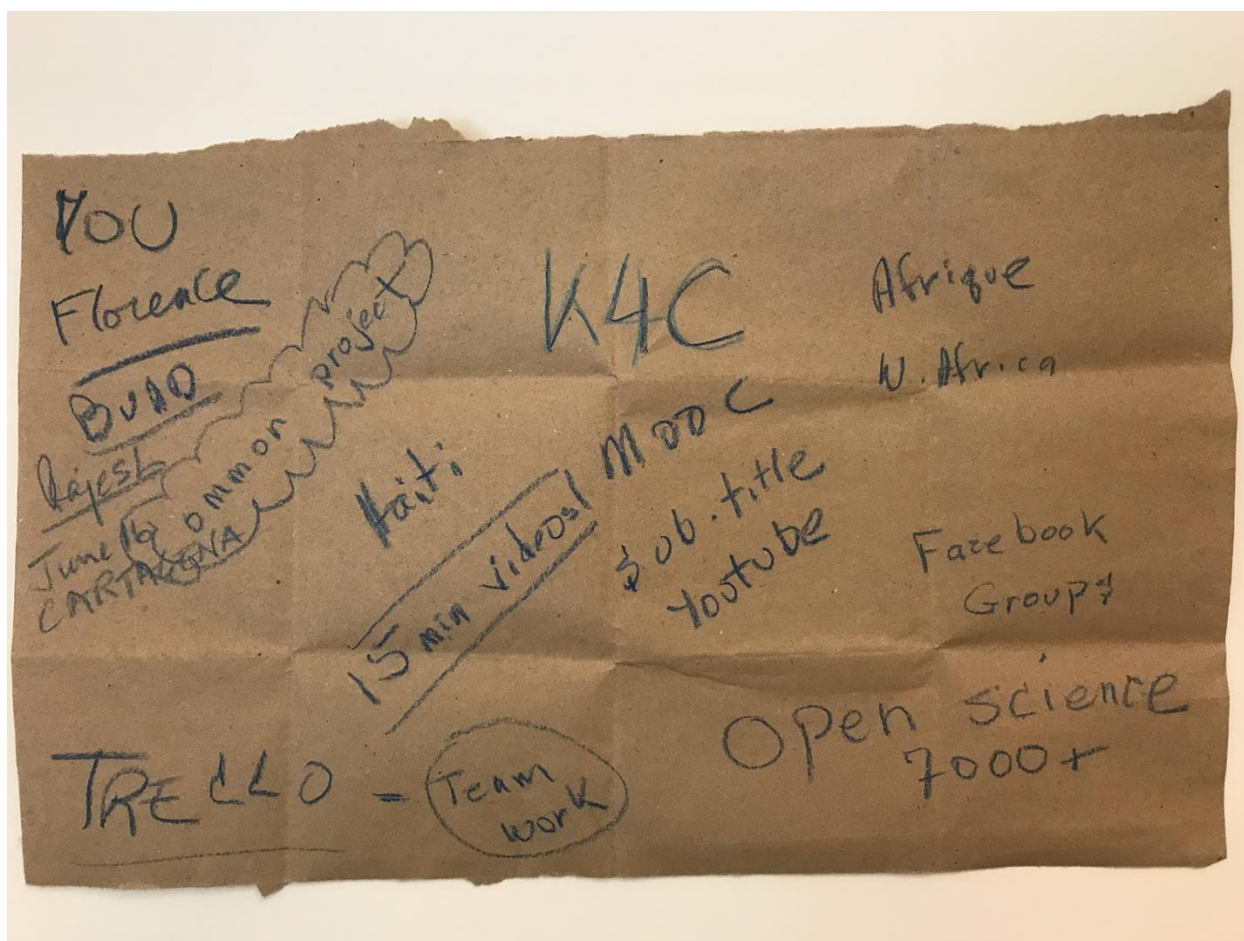 YOU
Florence
BUDD
Rajesh
June 16
CARTAGENA
Common project
K4C
Afrique
W. Africa
Haiti
15 min videos!
MOOC
Sub.title
Youtube
Facebook
Groups
Open science
7000+
TRELLO = Team
work